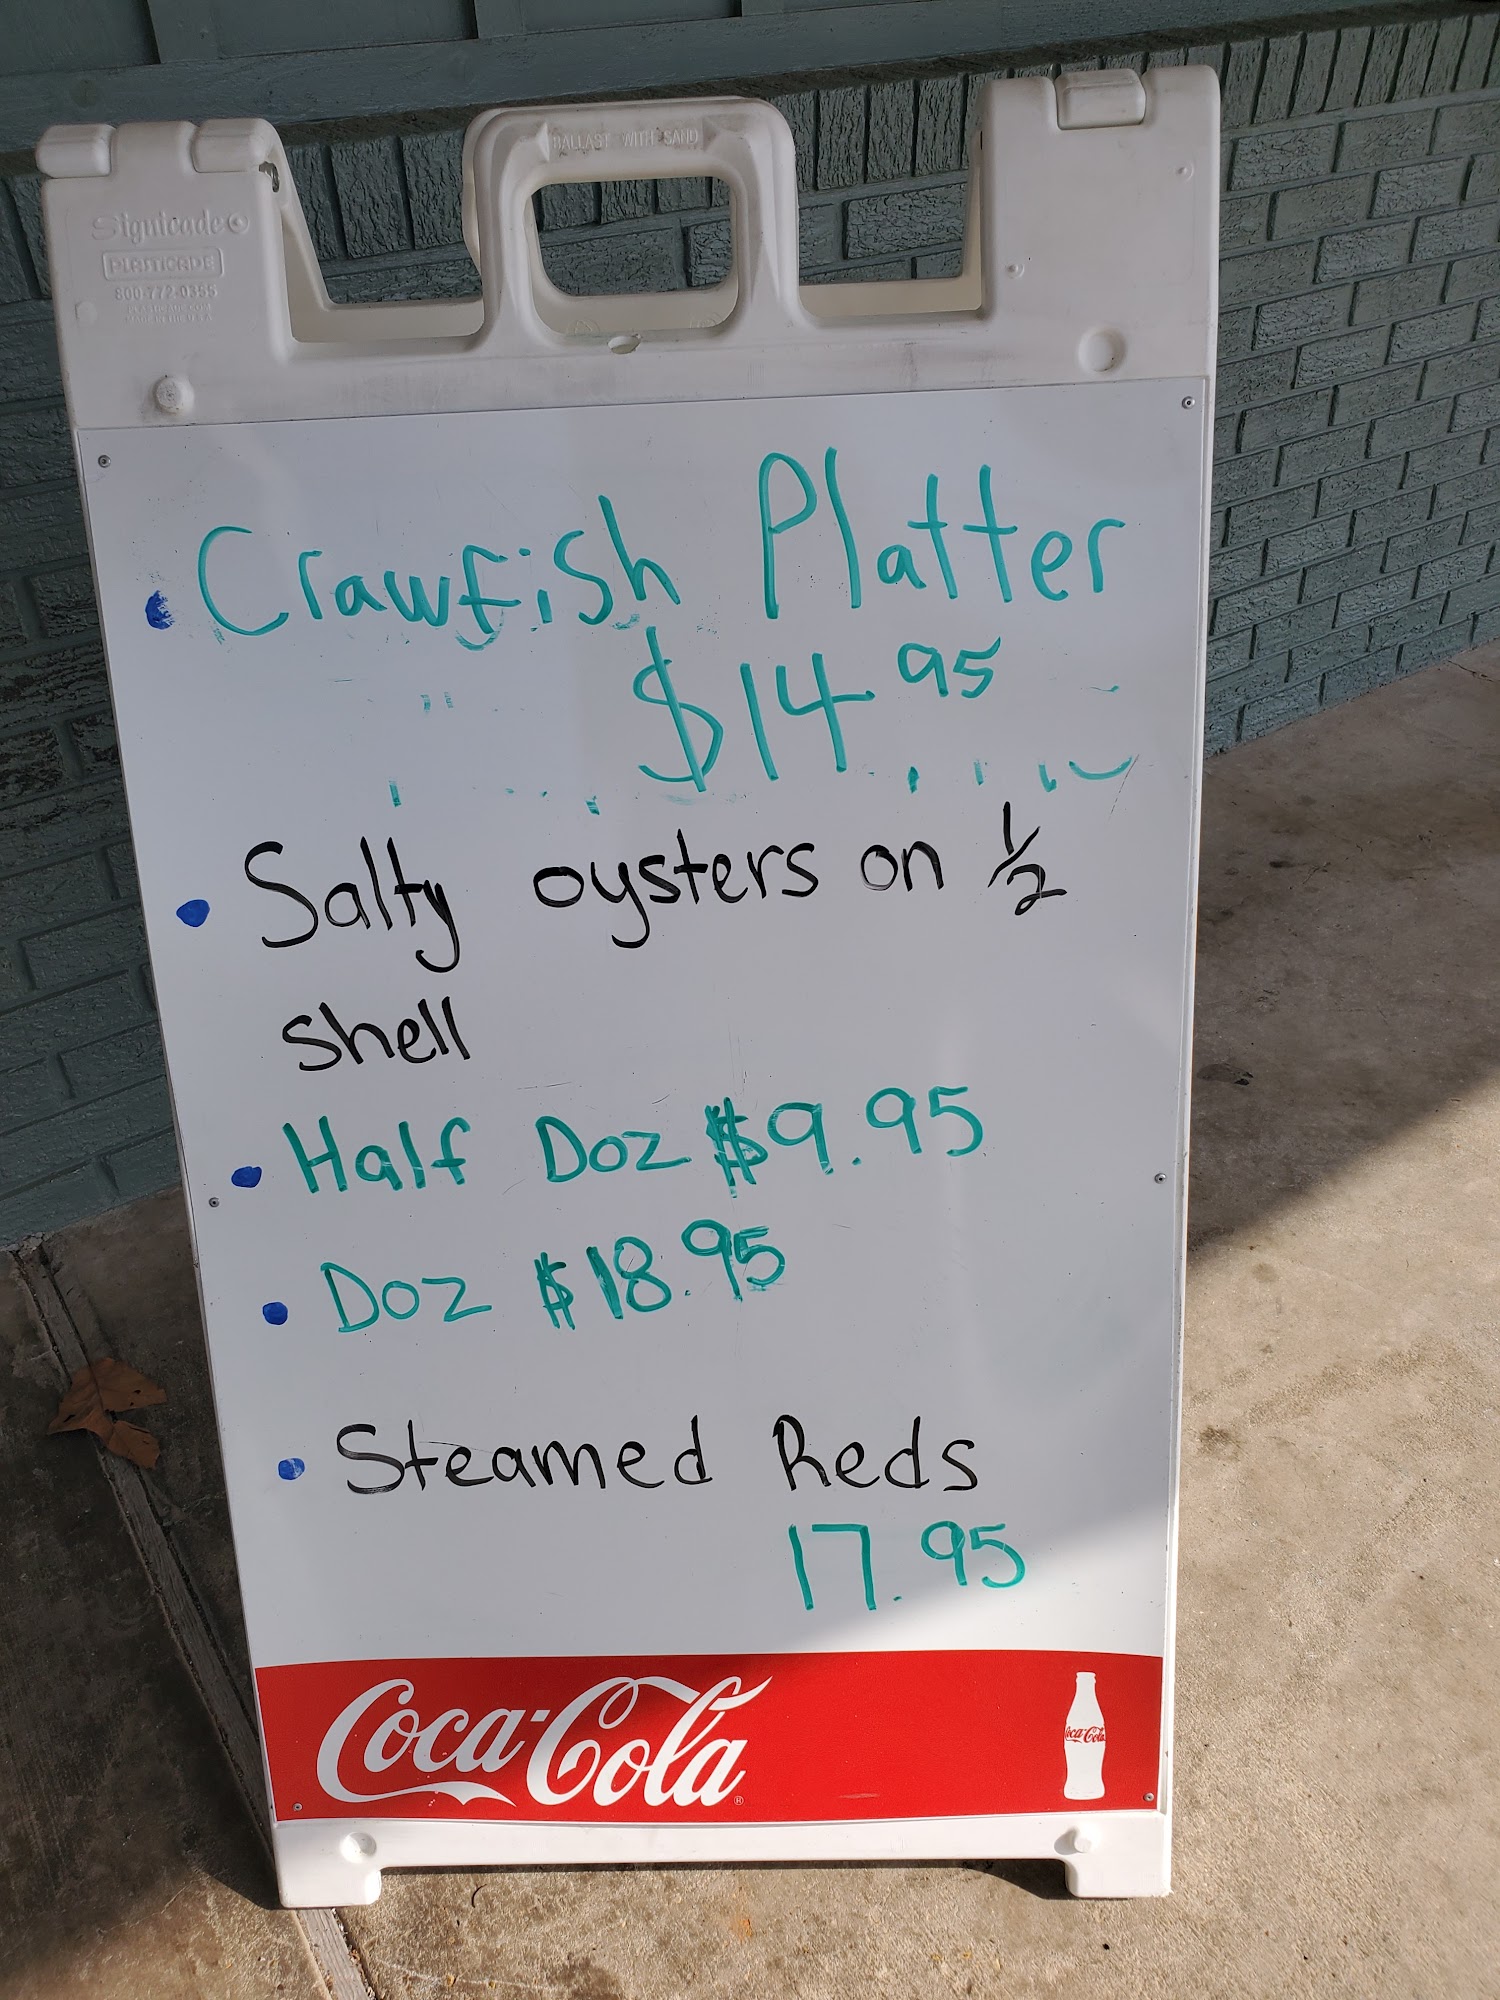 BALLAST WITH SAND
Signicade
PLASTICADE
800-772-0355
• Crawfish Platter
$14 95
• Salty oysters on 1/2
shell
• Half Doz $9.95
• Doz $18.95
• Steamed Reds
17.95
Coca-Cola ®
Coca-Cola